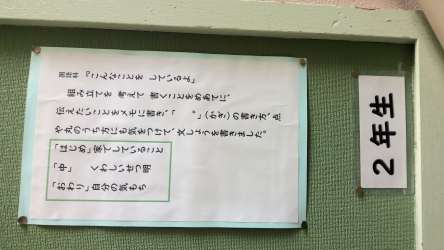 2年生
国語科 「こんなことを しているよ」
組み立てを 考えて 書くことをめあてに、
伝えたいことをメモに書き、「 。」(かぎ)の書き方、点
や丸のうち方にも気をつけて、文しょうを書きました。
「はじめ」家でしていること
「中」 くわしいせつ明
「おわり」自分の気もち